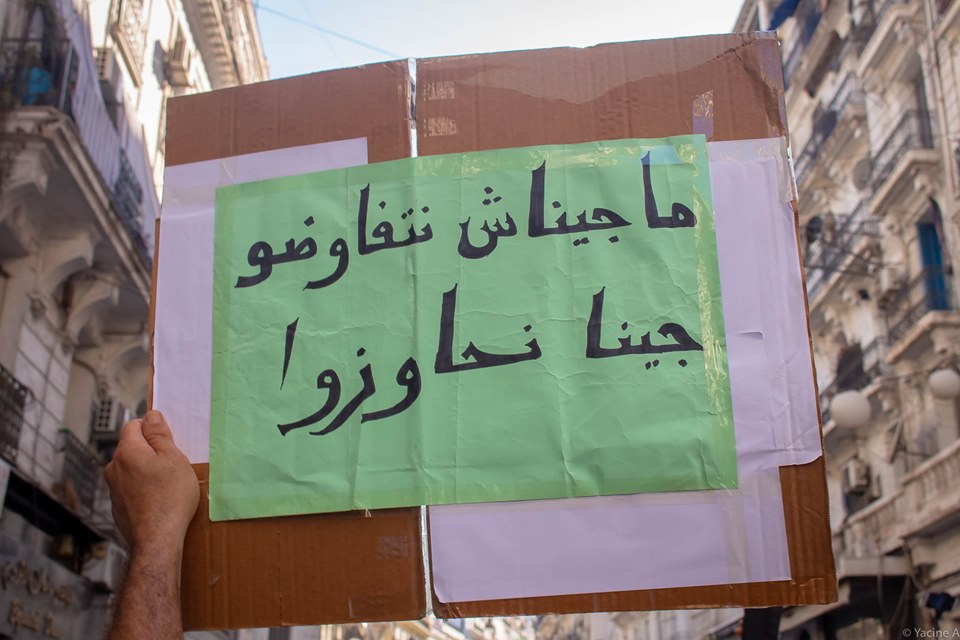 ما جيناش نتفاوضو
جينا نحاوزوا
© Yacine A